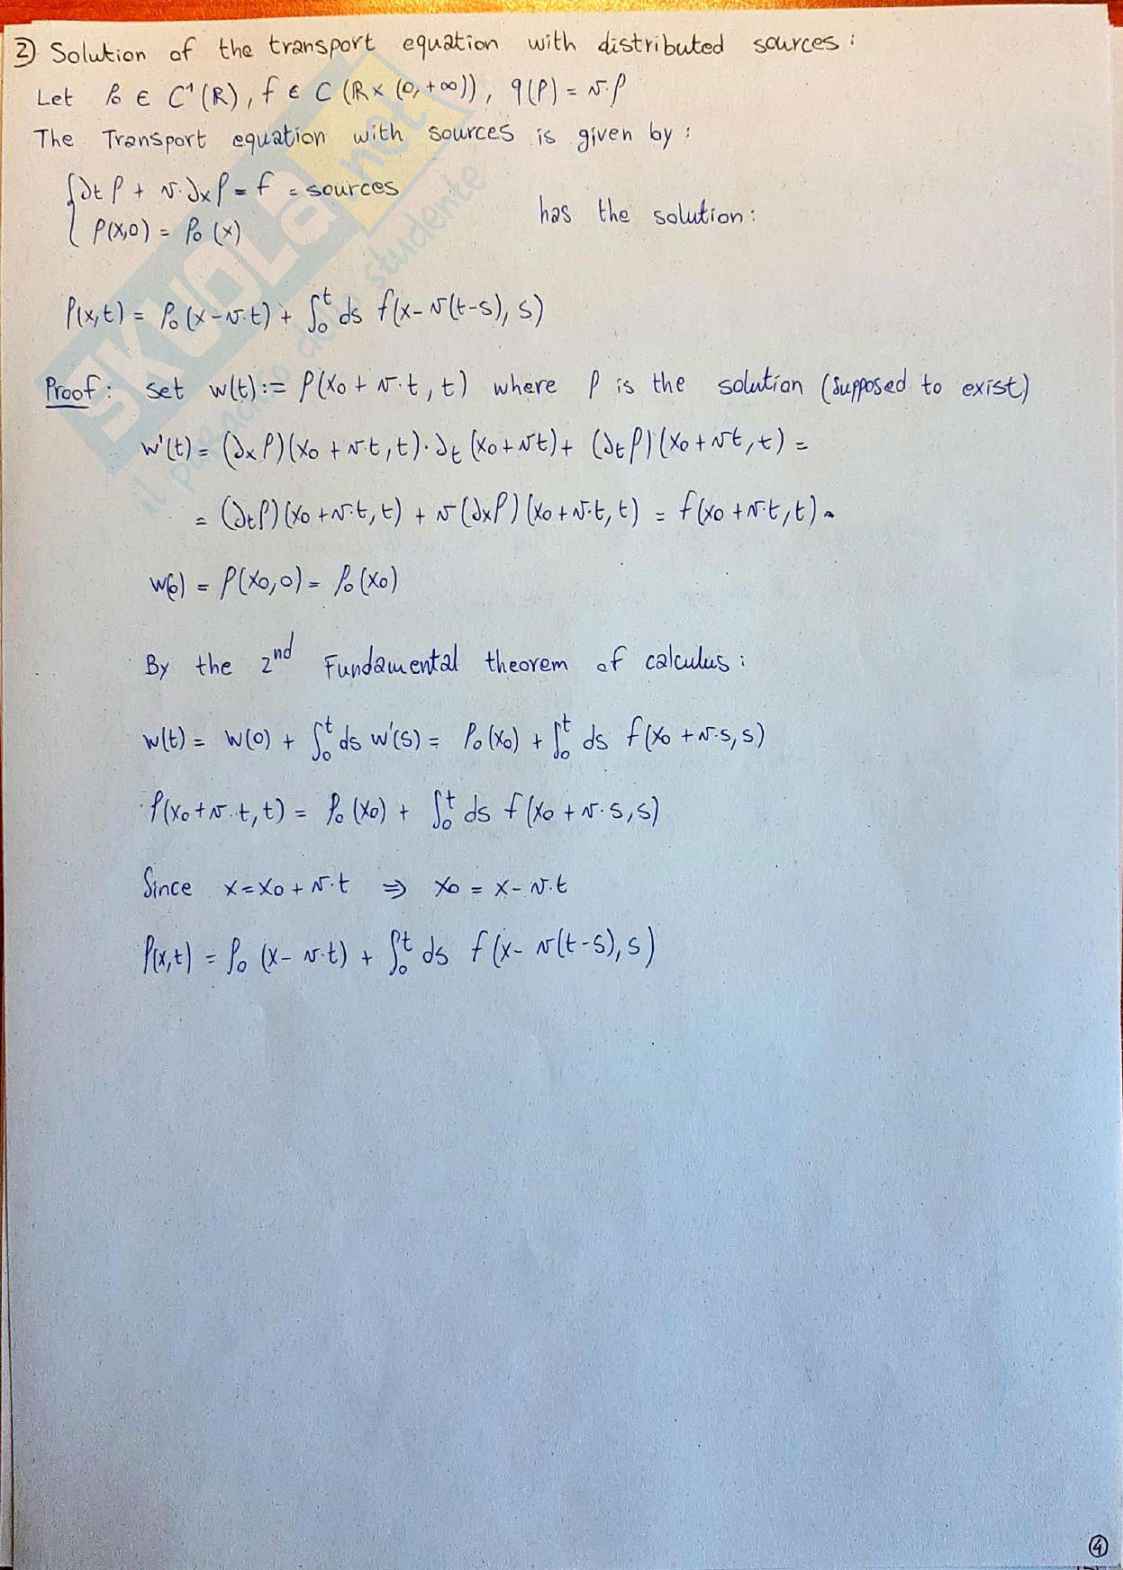 2) Solution of the transport equation with distributed sources:
Let ρ₀ ∈ C¹(R), f ∈ C(R×(0,+∞)), q(ρ) = v·ρ
The Transport equation with sources is given by:
{∂tρ + v·∂xρ = f = sources
ρ(x,0) = ρ₀(x)
has the solution:
ρ(x,t) = ρ₀(x-v·t) + ∫₀ᵗ ds f(x-v(t-s), s)
Proof: set w(t) := ρ(x₀ + v·t, t) where ρ is the solution (supposed to exist)
w'(t) = (∂xρ)(x₀ + v·t, t)·∂t(x₀+vt) + (∂tρ)(x₀+vt, t) =
= (∂tρ)(x₀+v·t, t) + v(∂xρ)(x₀+v·t, t) = f(x₀+v·t, t).
w(0) = ρ(x₀,0) = ρ₀(x₀)
By the 2nd Fundamental theorem of calculus:
w(t) = w(0) + ∫₀ᵗ ds w'(s) = ρ₀(x₀) + ∫₀ᵗ ds f(x₀+v·s, s)
ρ(x₀+v·t, t) = ρ₀(x₀) + ∫₀ᵗ ds f(x₀+v·s, s)
Since x = x₀ + v·t ⇒ x₀ = x - v·t
ρ(x,t) = ρ₀(x - v·t) + ∫₀ᵗ ds f(x - v(t-s), s)
SKUOLA.net
il paradiso dello studente
4